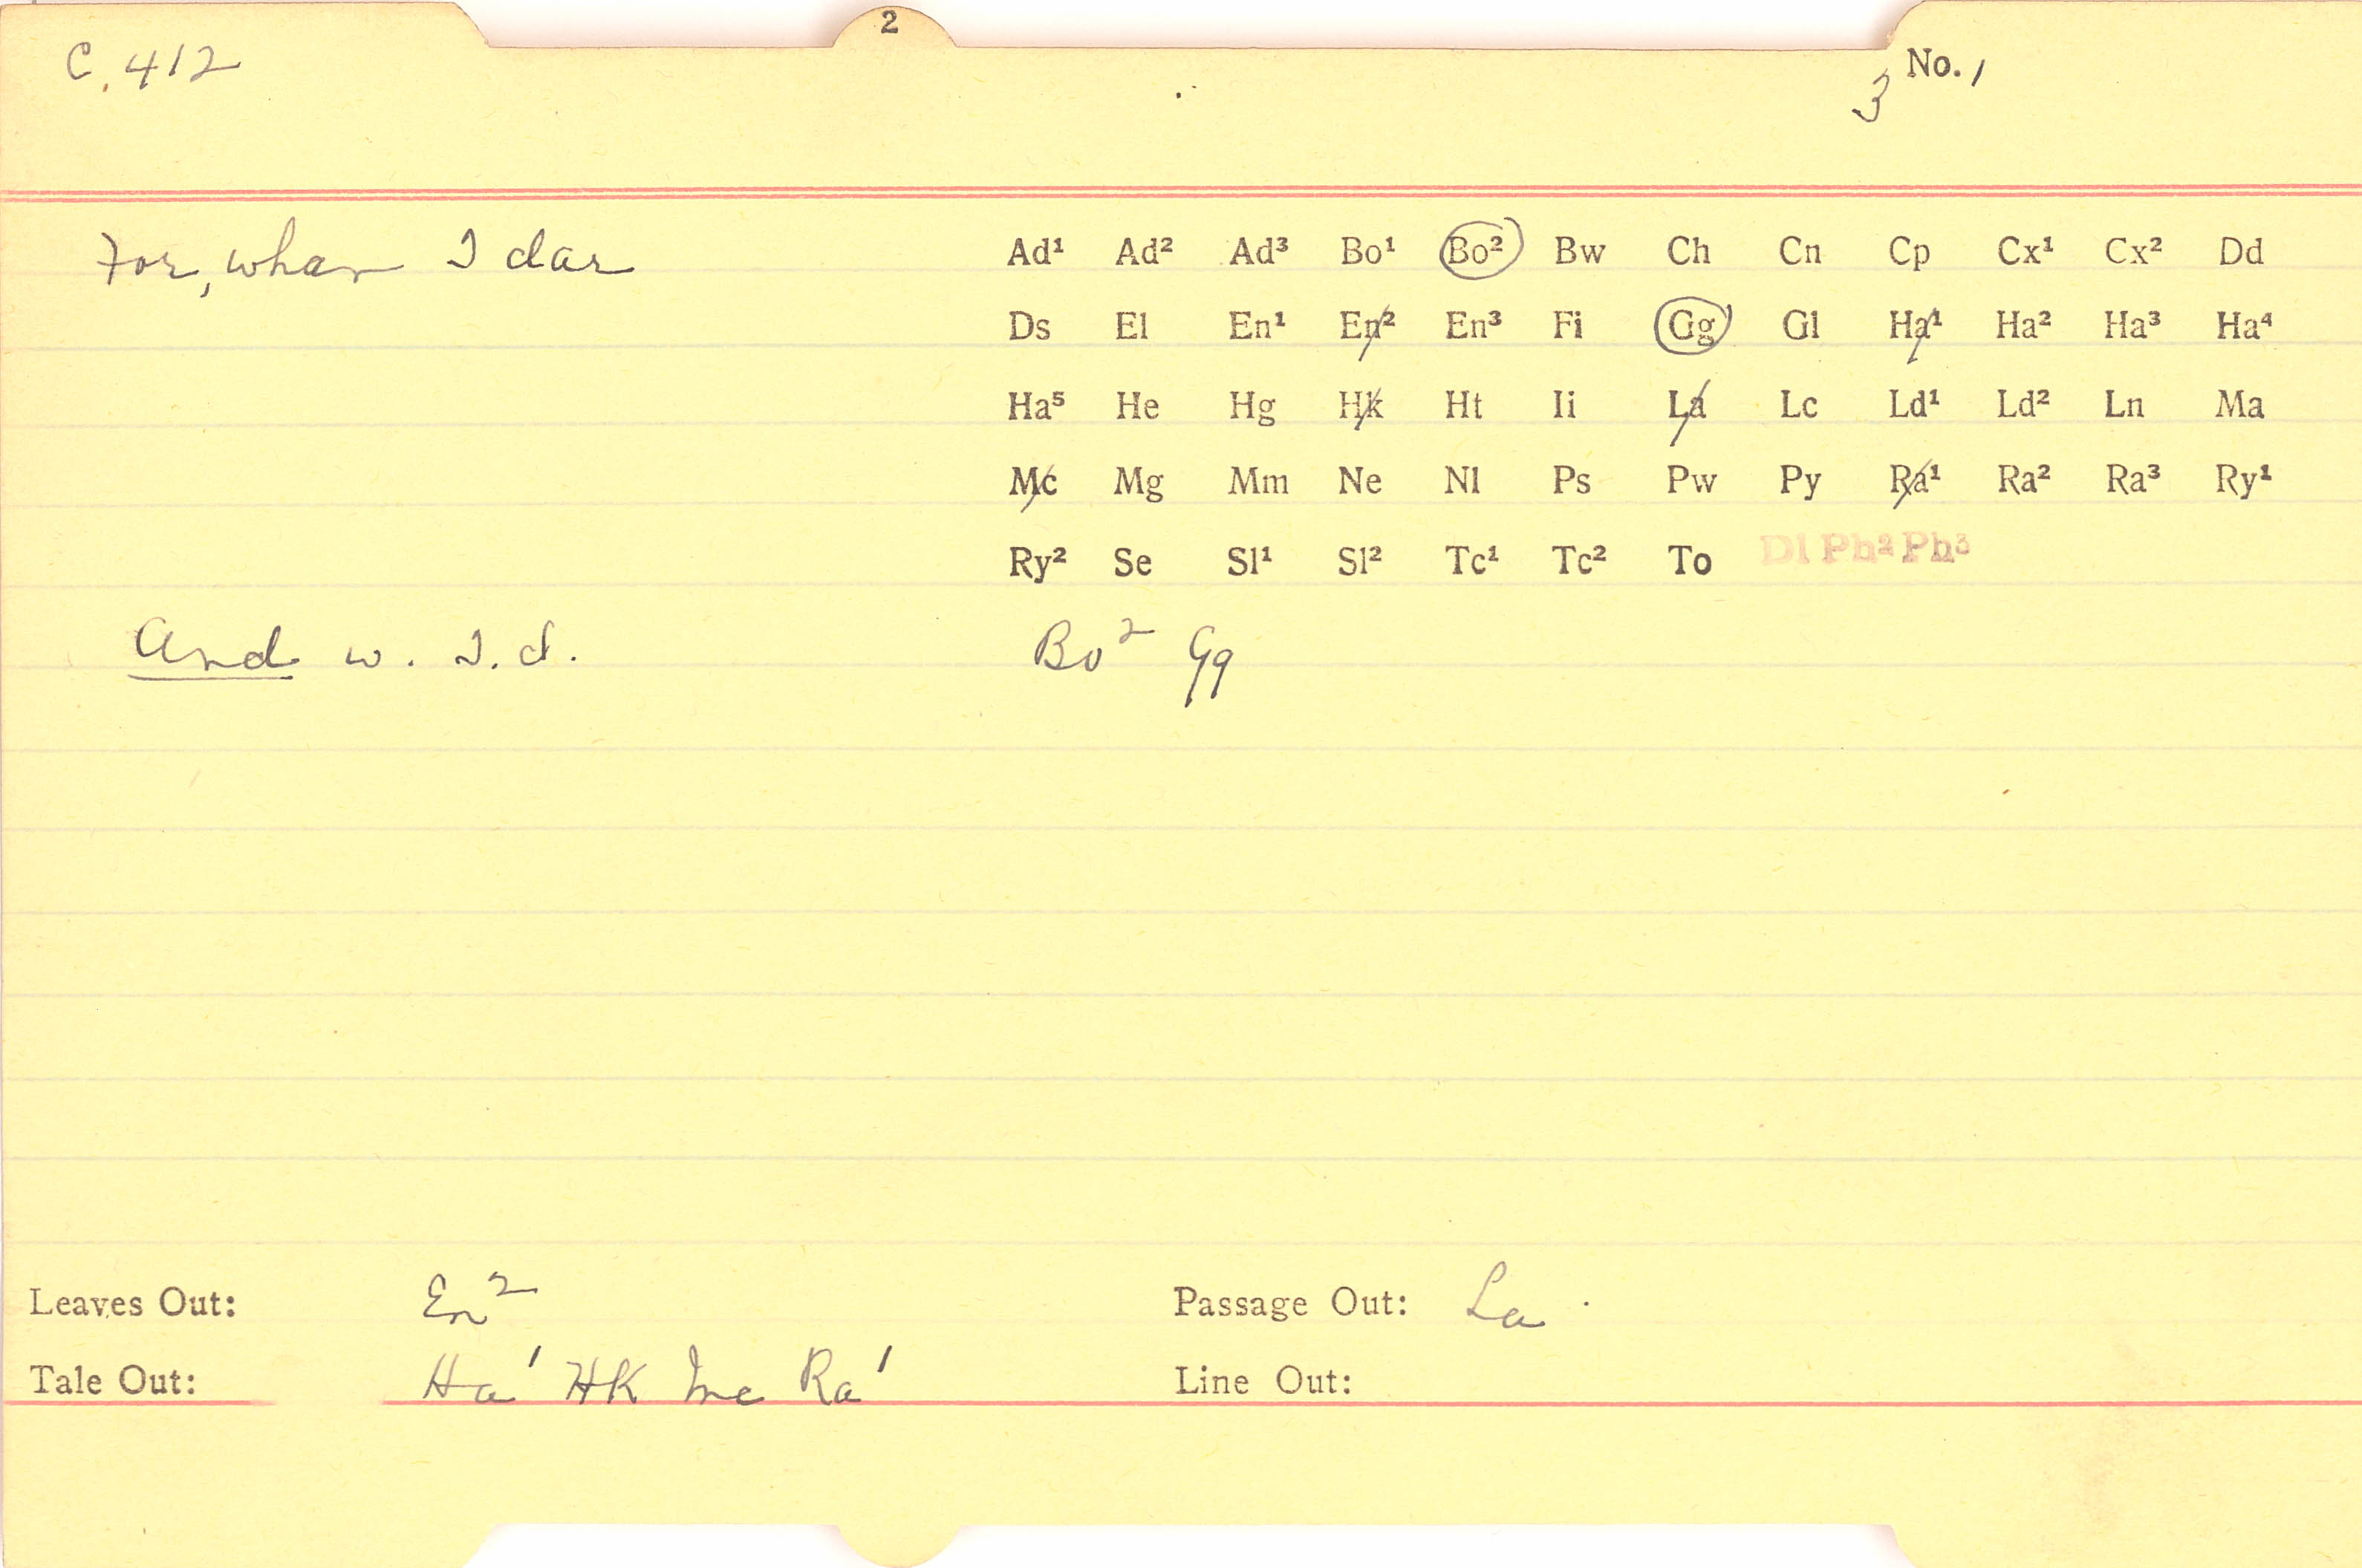 2
C. 412
No. 1
3
For, whan I dar
Ad¹ Ad² Ad³ Bo¹ Bo² Bw Ch Cn Cp Cx¹ Cx² Dd
Ds El En¹ En² En³ Fi Gg Gl Ha¹ Ha² Ha³ Ha⁴
Ha⁵ He Hg Hk Ht Ii La Lc Ld¹ Ld² Ln Ma
Mc Mg Mm Ne Nl Ps Pw Py Ra¹ Ra² Ra³ Ry¹
Ry² Se Sl¹ Sl² Tc¹ Tc² To Dl Ph² Ph³
And w. I. d. Bo² Gg
Leaves Out: En² Passage Out: La
Tale Out: Ha¹ HK Mc Ra¹ Line Out: